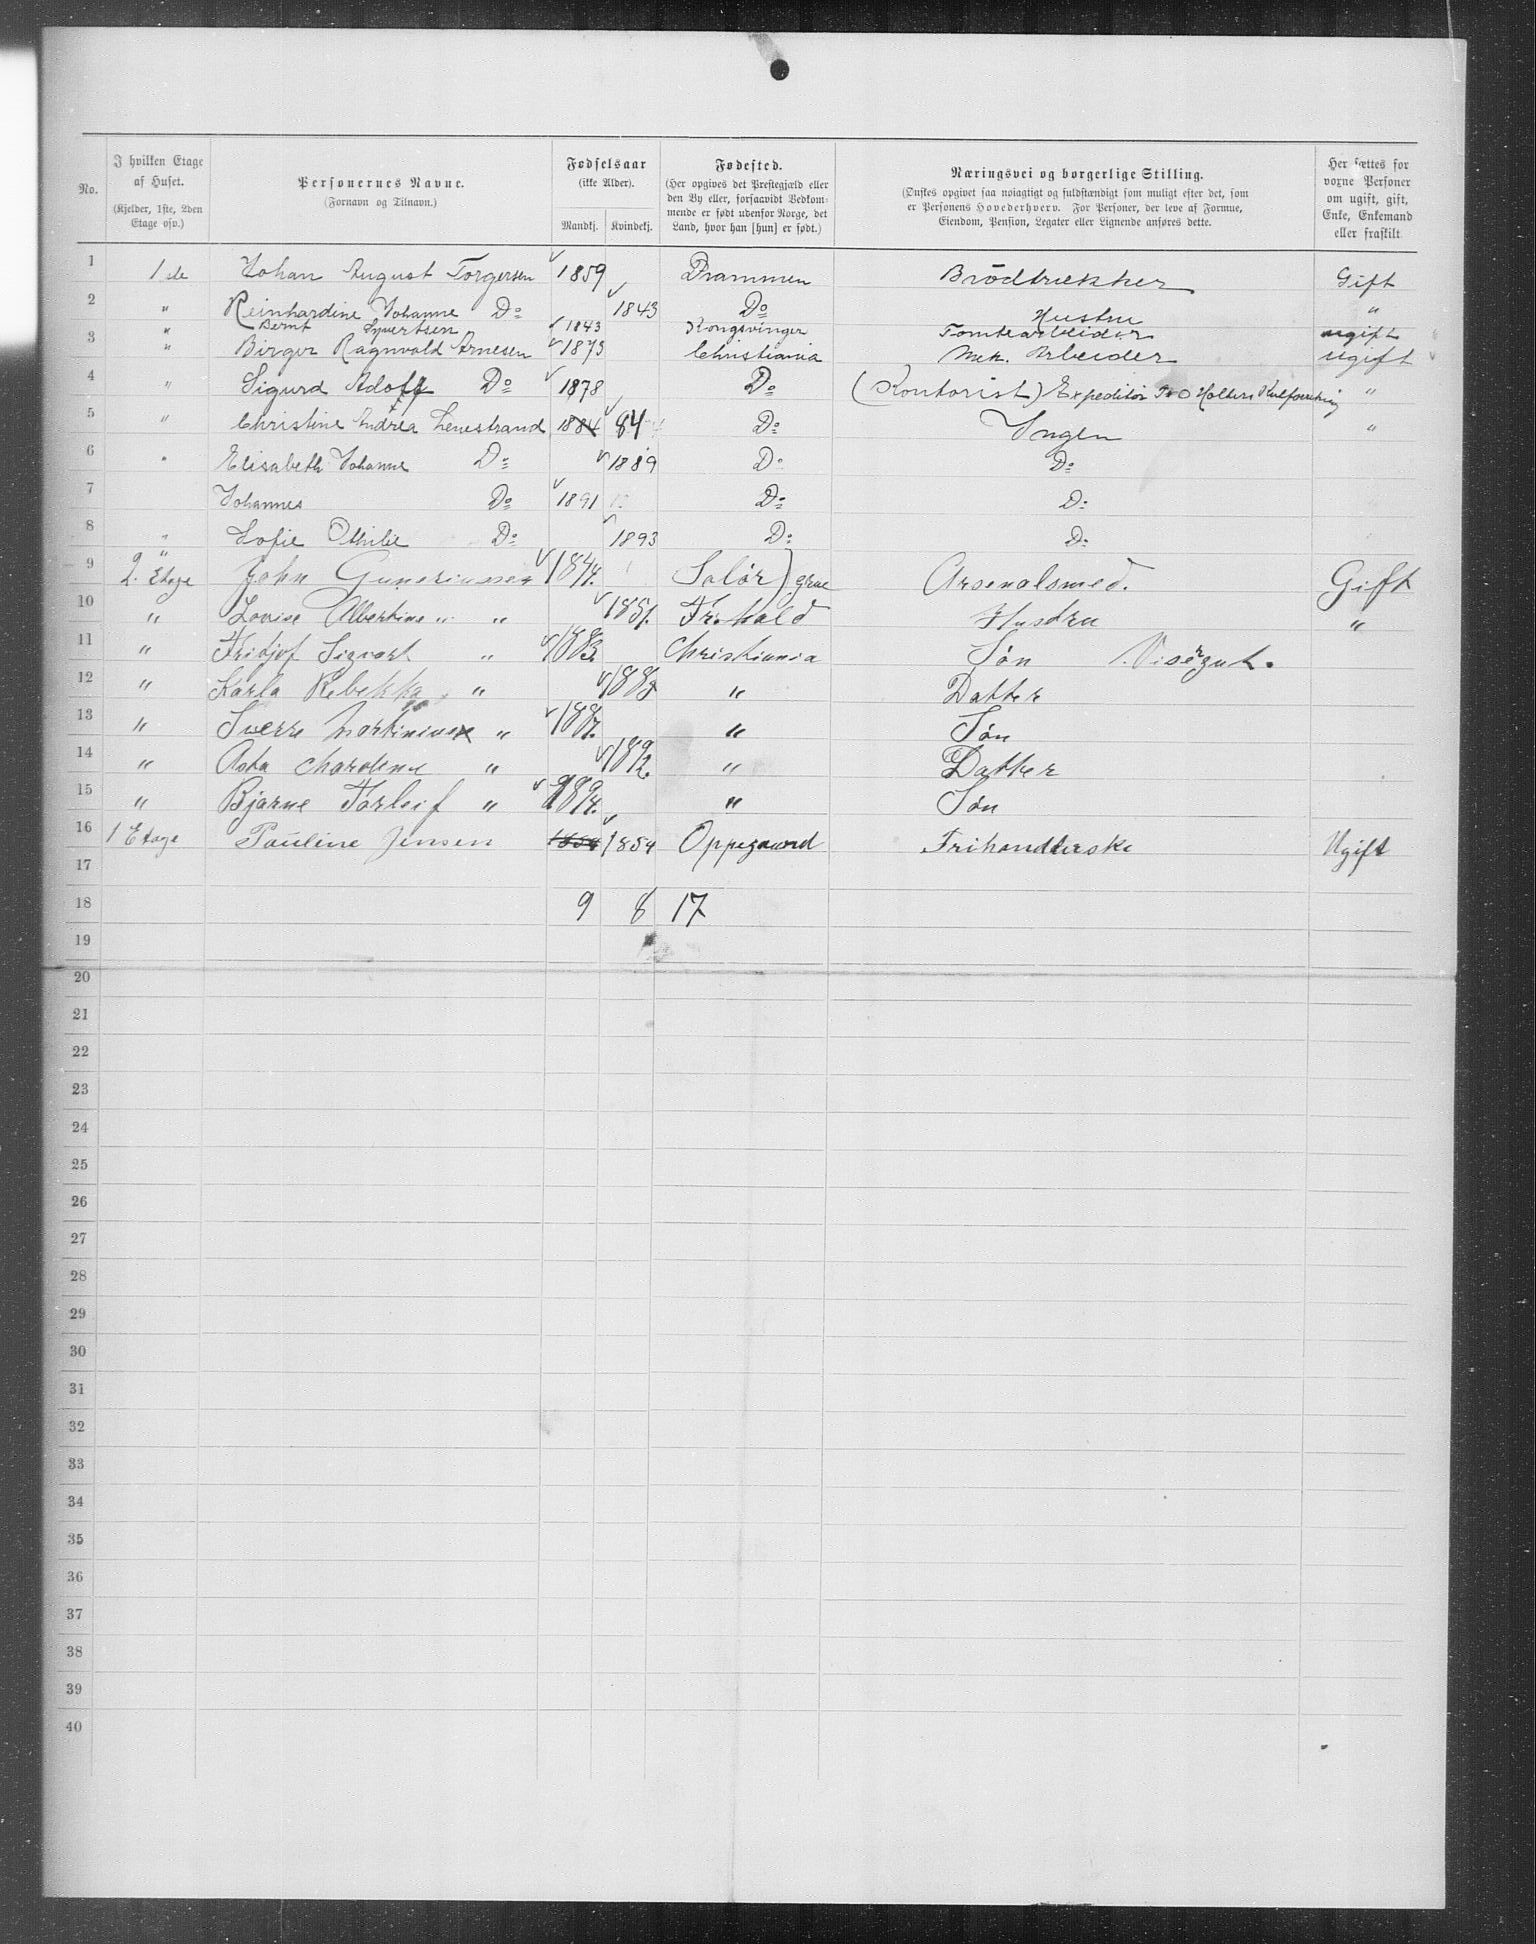 No. | I hvilken Etage af Huset. (Kjelder, 1ste, 2den Etage osv.) | Personernes Navne. (Fornavn og Tilnavn.) | Fødselsaar (ikke Alder). Mandkj. Kvindekj. | Fødested. (Her opgives det Prestegjæld eller den By eller, forsaavidt Vedkommende er født udenfor Norge, det Land, hvor han [hun] er født.) | Næringsvei og borgerlige Stilling. (Ønskes opgivet saa nøiagtigt og fuldstændigt som muligt efter det, som er Personens Hovederhverv. For Personer, der leve af Formue, Eiendom, Pension, Legater eller Lignende anføres dette.) | Her sættes for voxne Personer om ugift, gift, Enke, Enkemand eller fraskilt
1 | 1 ste | Johan August Torgersen | 1859 | Drammen | Brödtrekker | Gift
2 | " | Reinhardine Johanne Do | 1843 | Do | Hustru | "
" | Bernt Syvertsen | 1843 | Kongsvinger | Tomtearbeider | ugift
3 | " | Birger Ragnvald Arnesen | 1873 | Christiania | Mek. Arbeider | ugift
4 | " | Sigurd Adolf Do | 1878 | Do | (Kontorist) Expeditör | "
5 | " | Christine Andrea Lenestrand | 1884 84 | Do | Ingen | "
6 | " | Elisabeth Johanne Do | 1889 | Do | Do
7 | Johannes Do | 1891 | Do | Do
8 | " | Sofie Othilie Do | 1893 | Do | Do
9 | 2. Etage | John Gunerius­sen | 1844. | Solör) grue | Arsenalsmed. | Gift
10 | " | Lovise Albertine " " | 1851. | Fr.hald | Hustru | "
11 | " | Fridjof Sigvart " | 1883 | Christiania | Sön Visergut.
12 | " | Karla Rebekka " | 188 | " | Datter
13 | " | Sverre Martinius " | 1887. | " | Sön
14 | " | Asta Charolene " | 1892. | " | Datter
15 | " | Bjarne Torleif " | 1894. | " | Sön
16 | 1 Etage | Pauline Jensen | 1854 1854 | Oppegaard | Frihandlerske | Ugift
17
18 | 9 8 17
19
20
21
22
23
24
25
26
27
28
29
30
31
32
33
34
35
36
37
38
39
40